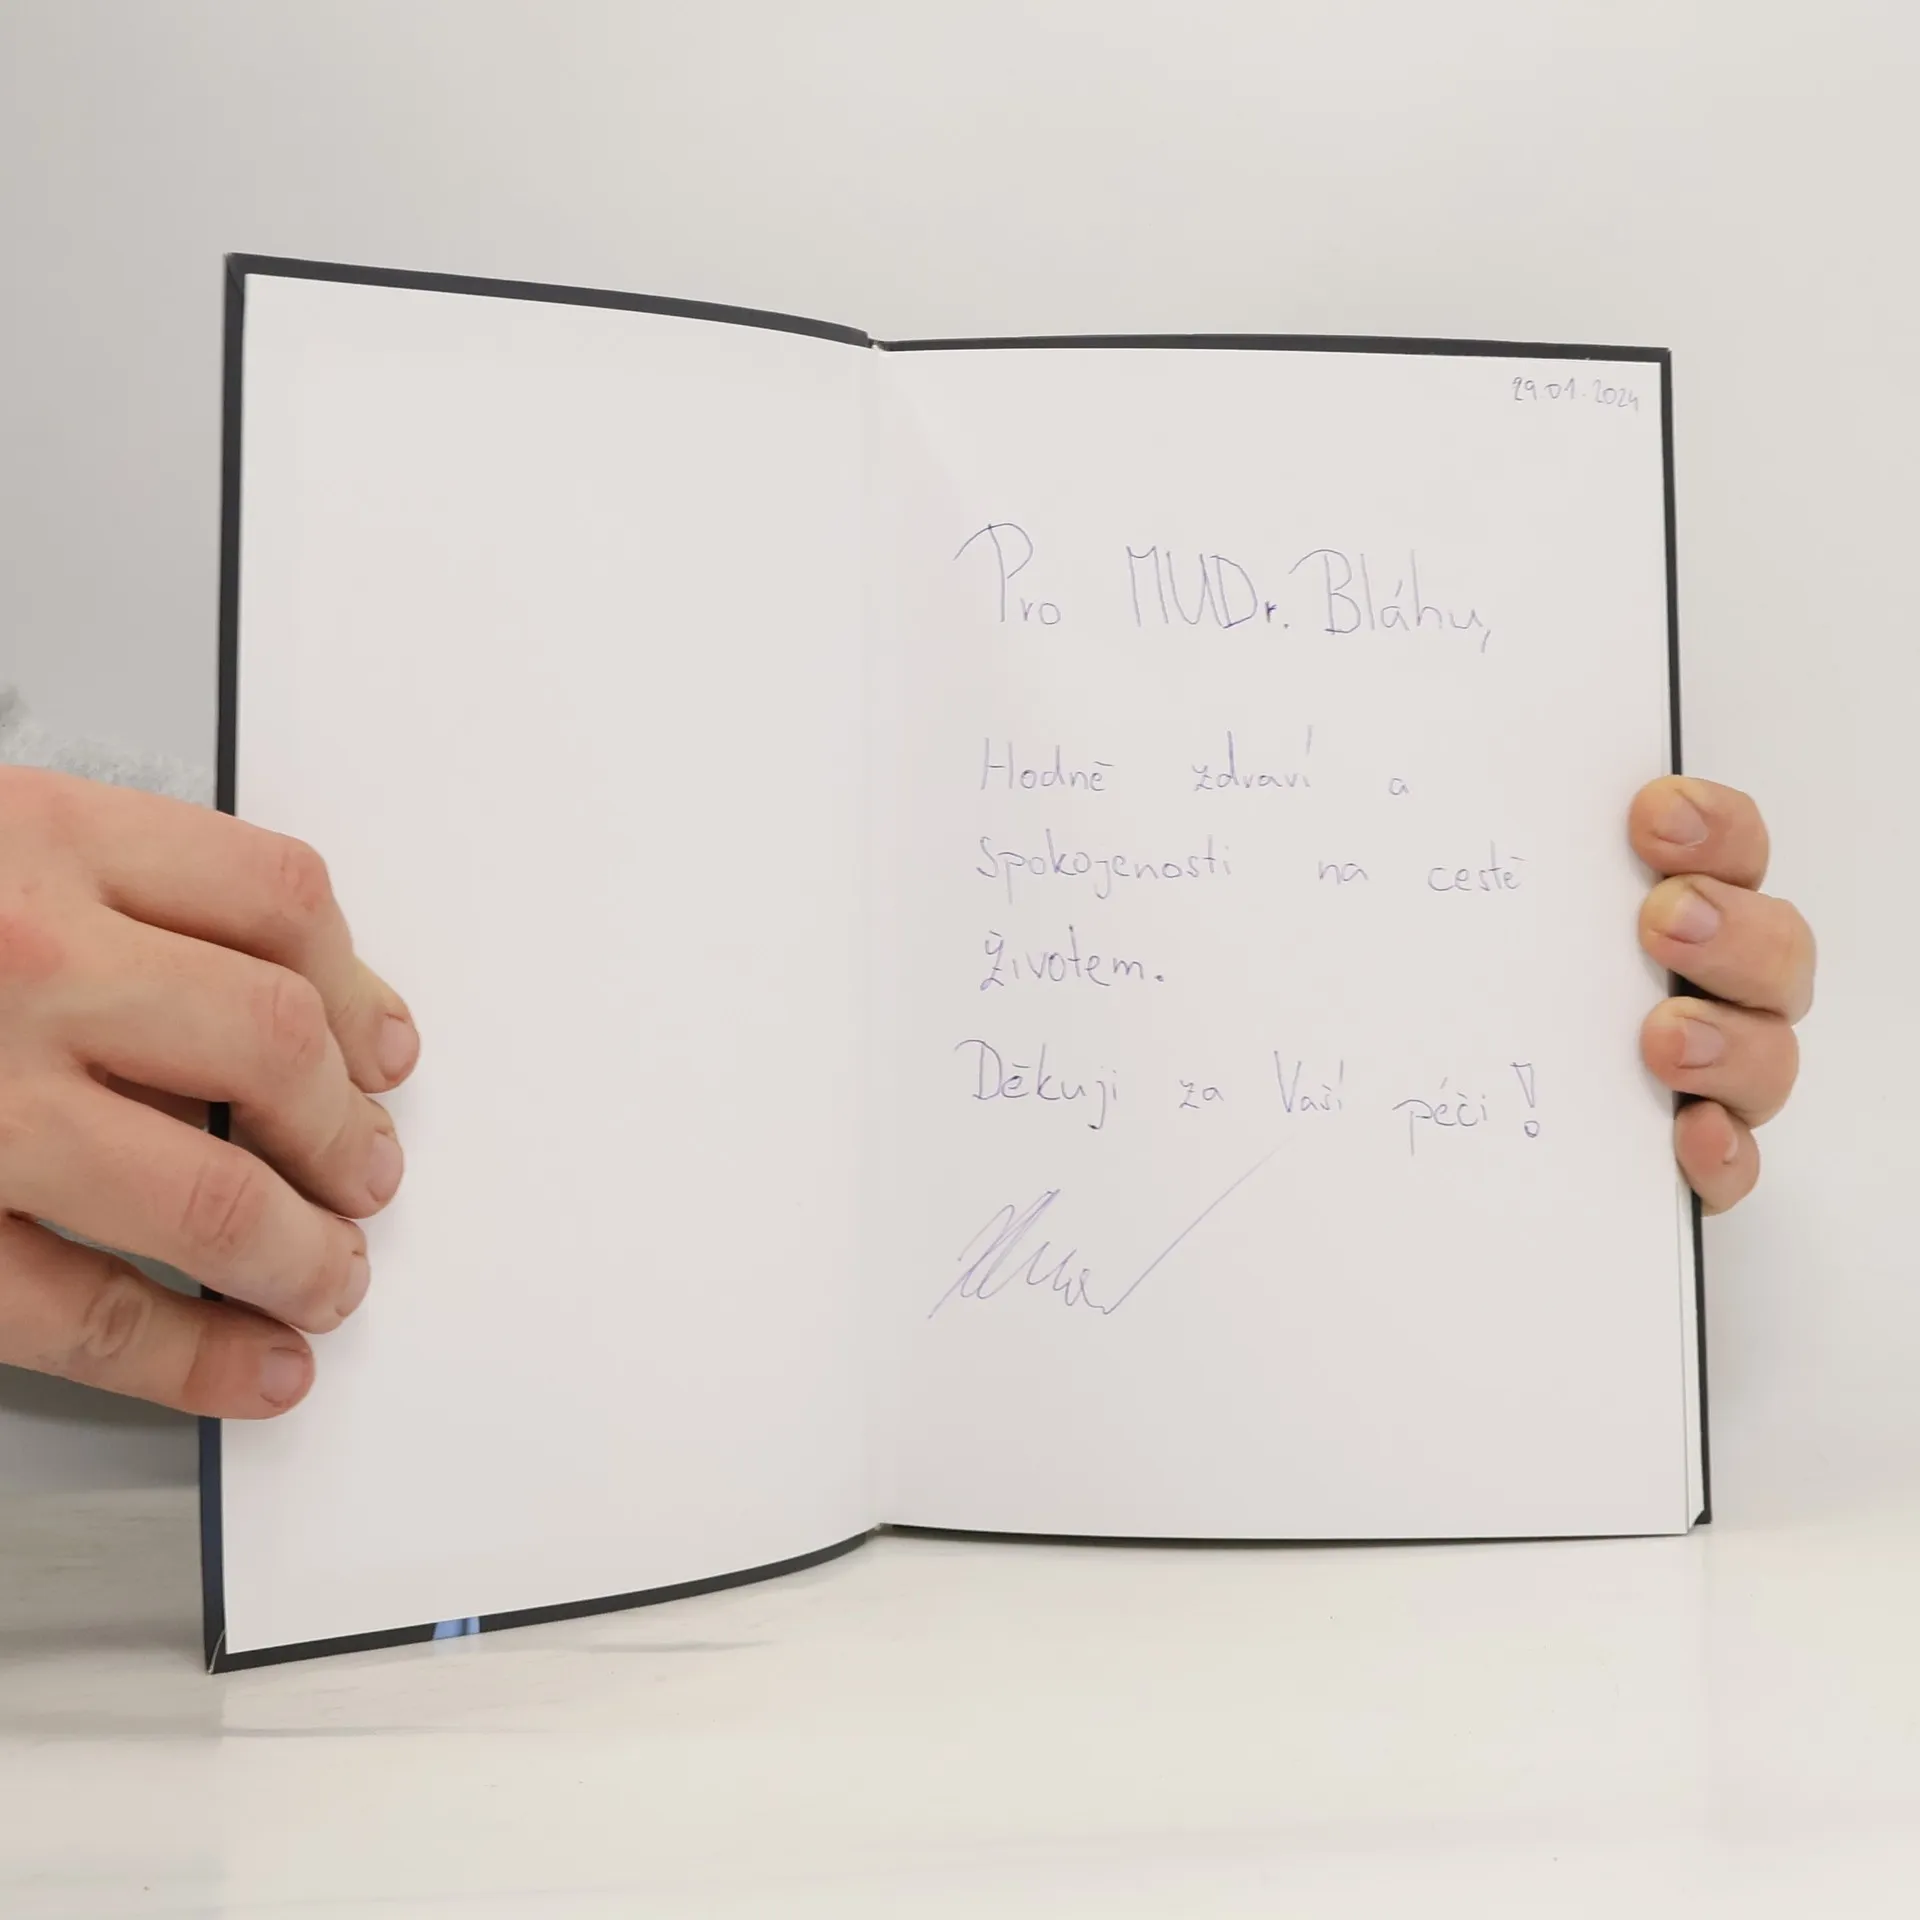 29.01.2024
Pro MUDr. Bláhu,
Hodně zdraví a
Spokojenosti na cestě
životem.
Děkuji za Vaší péči!